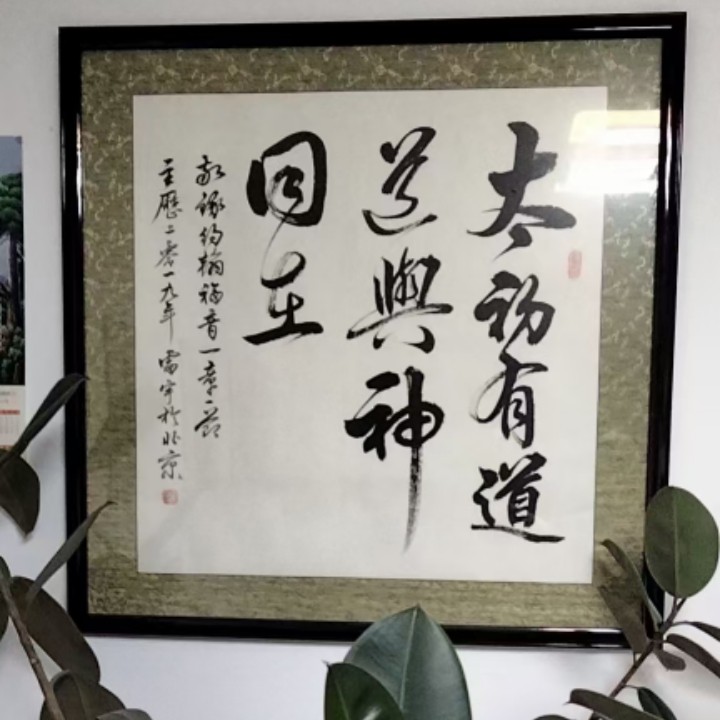 太初有道
道與神
同在
敬錄約翰福音一章一節
主歷二零一九年 雷宇於北京